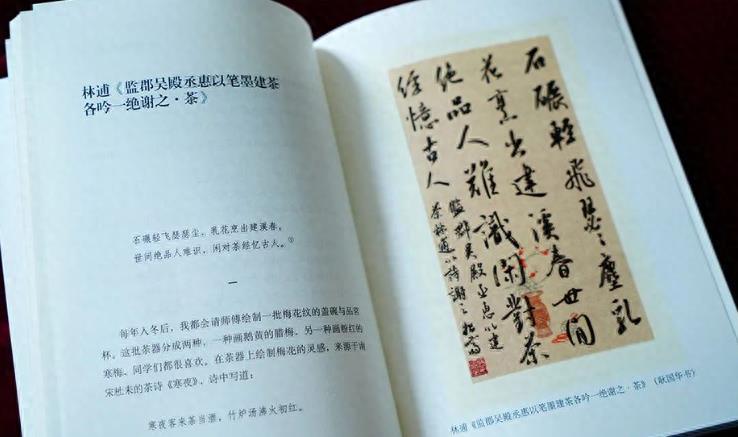 林逋《监郡吴殿丞惠以笔墨建茶
各吟一绝谢之·茶》
石碾轻飞瑟瑟尘，乳花烹出建溪春。
世间绝品人难识，闲对茶经忆古人。①
一
每年入冬后，我都会请师傅绘制一批梅花纹的盖碗与品茗
杯。这批茶器分成两种，一种画鹅黄的腊梅，另一种画粉红的
寒梅，同学们都很喜欢。在茶器上绘制梅花的灵感，来源于南
宋杜耒的茶诗《寒夜》，诗中写道：
寒夜客来茶当酒，竹炉汤沸火初红。
石碾輕飛瑟々塵乳
花烹出建溪春世間
绝品人難識閑對茶
經憶古人
監郡吴殿丞惠以建
茶林逋以詩謝之
林逋《监郡吴殿丞惠以笔墨建茶各吟一绝谢之·茶》（耿国华书）